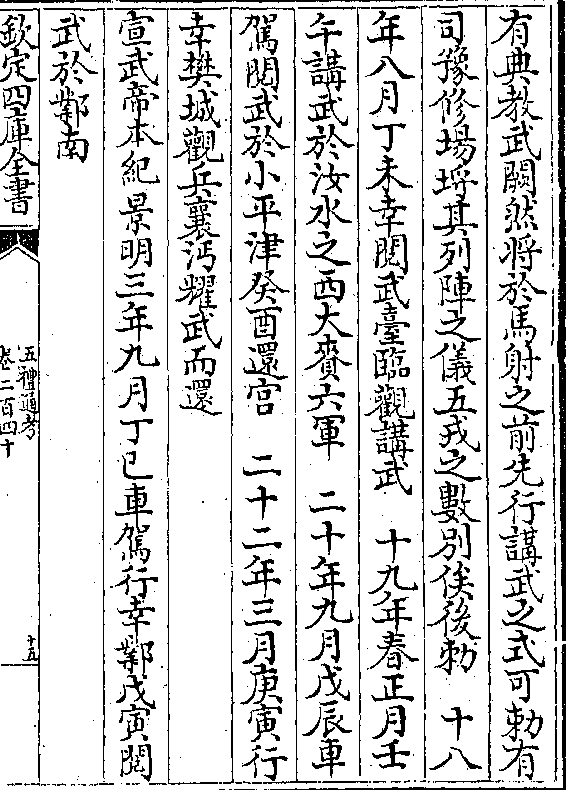 有典教武闕然將於馬射之前先行講武之式可勅有
司豫修場埒其列陣之儀五戎之數別俟後勅　十八
年八月丁未幸閱武臺臨觀講武　十九年春正月壬
午講武於汝水之西大賚六軍　二十年九月戊辰車
駕閱武於小平津癸酉還宫　二十二年三月庚寅行
幸樊城觀兵襄沔耀武而還
宣武帝本紀景明三年九月丁巳車駕行幸鄴戊寅閱
武於鄴南
欽定四庫全書
五禮通考
卷二百四十
十五